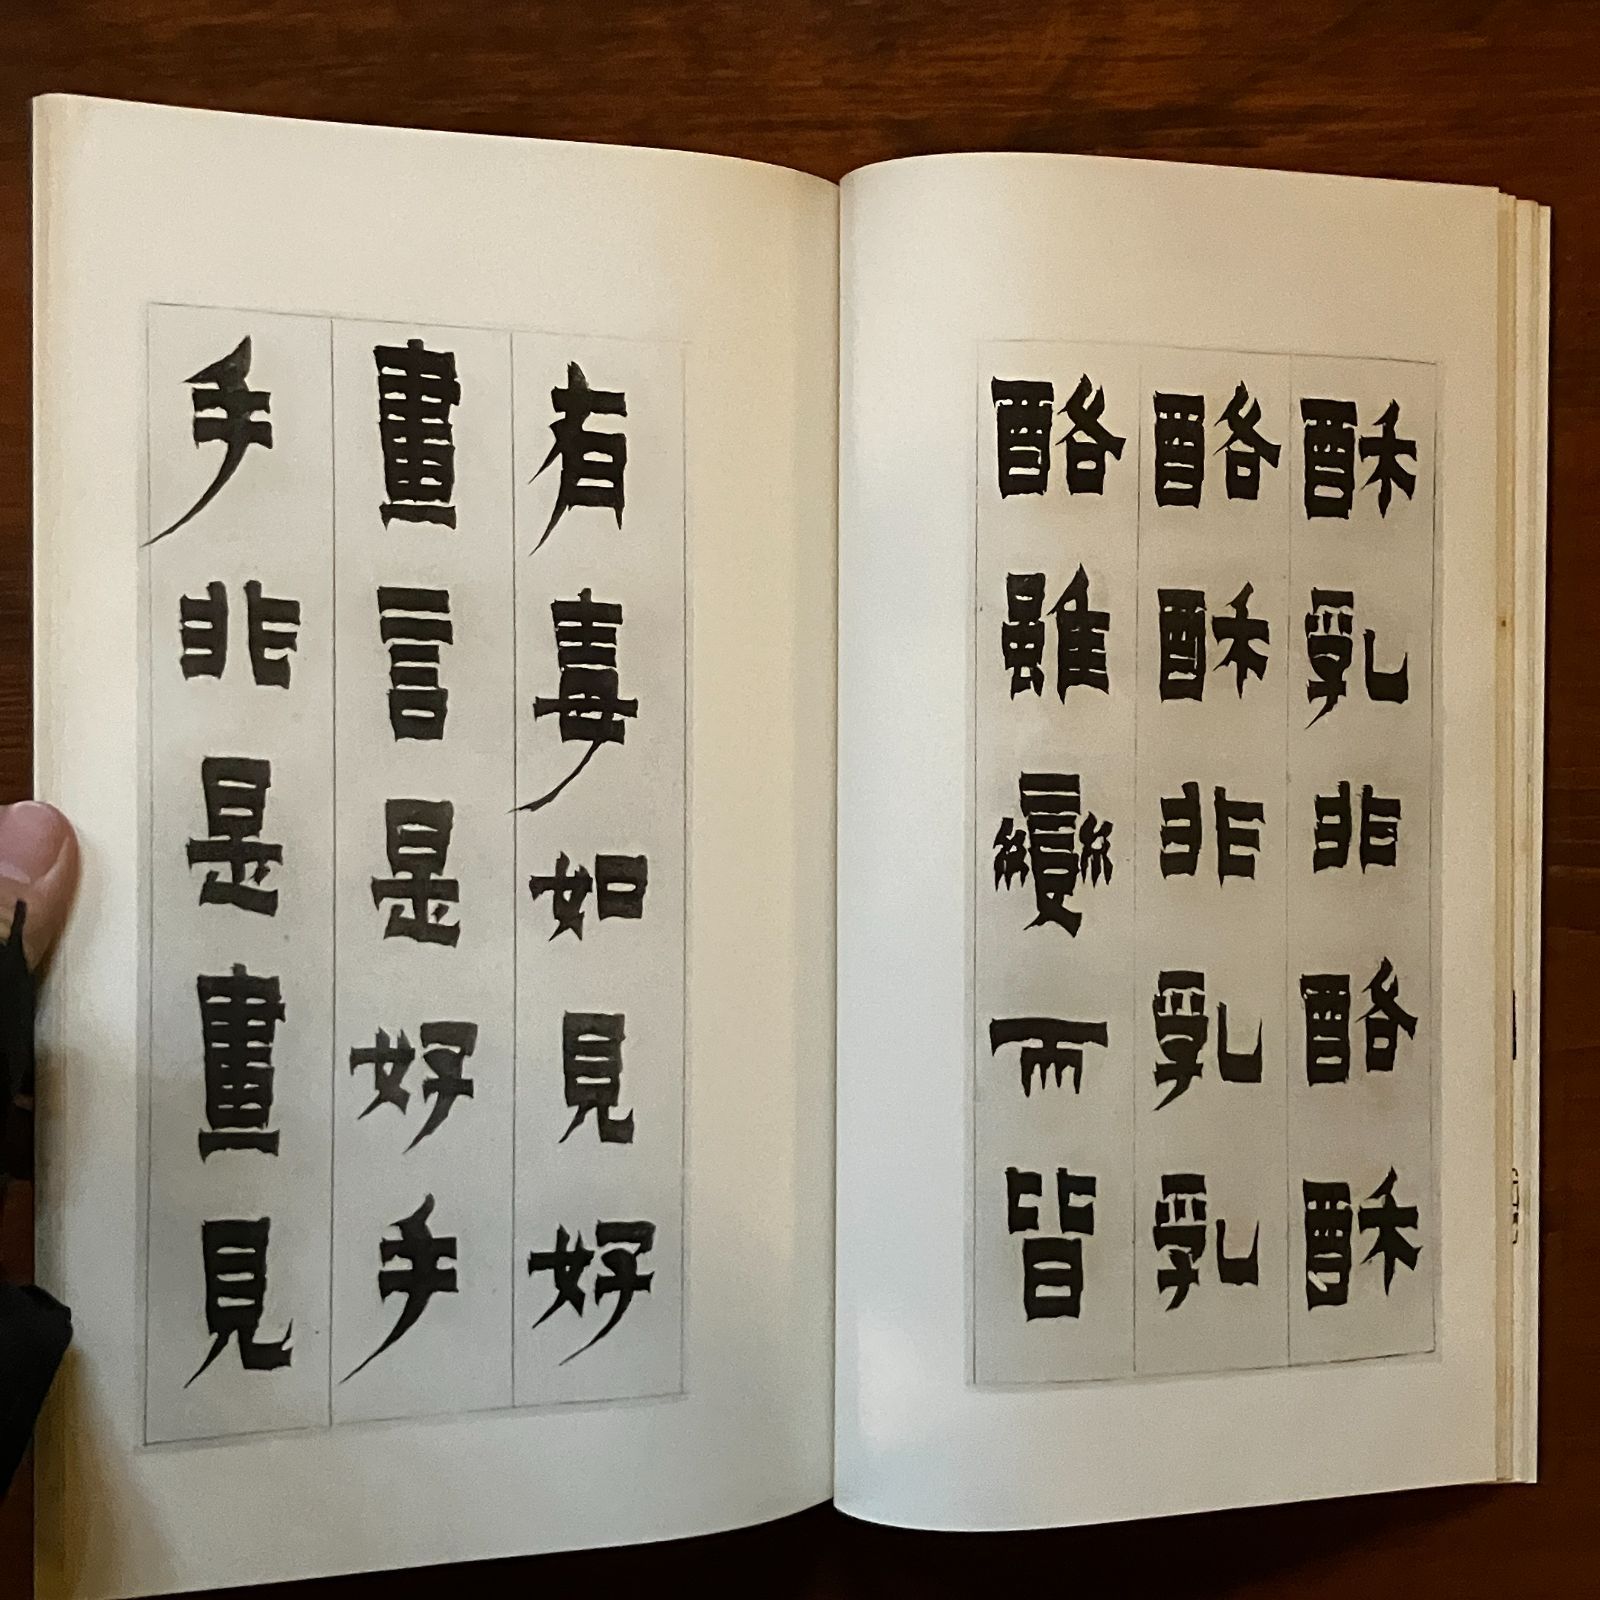 酥乳非酪酥
酪酥非乳乳
酪雖變而皆
有毒如見好
畫言是好手
手非是畫見